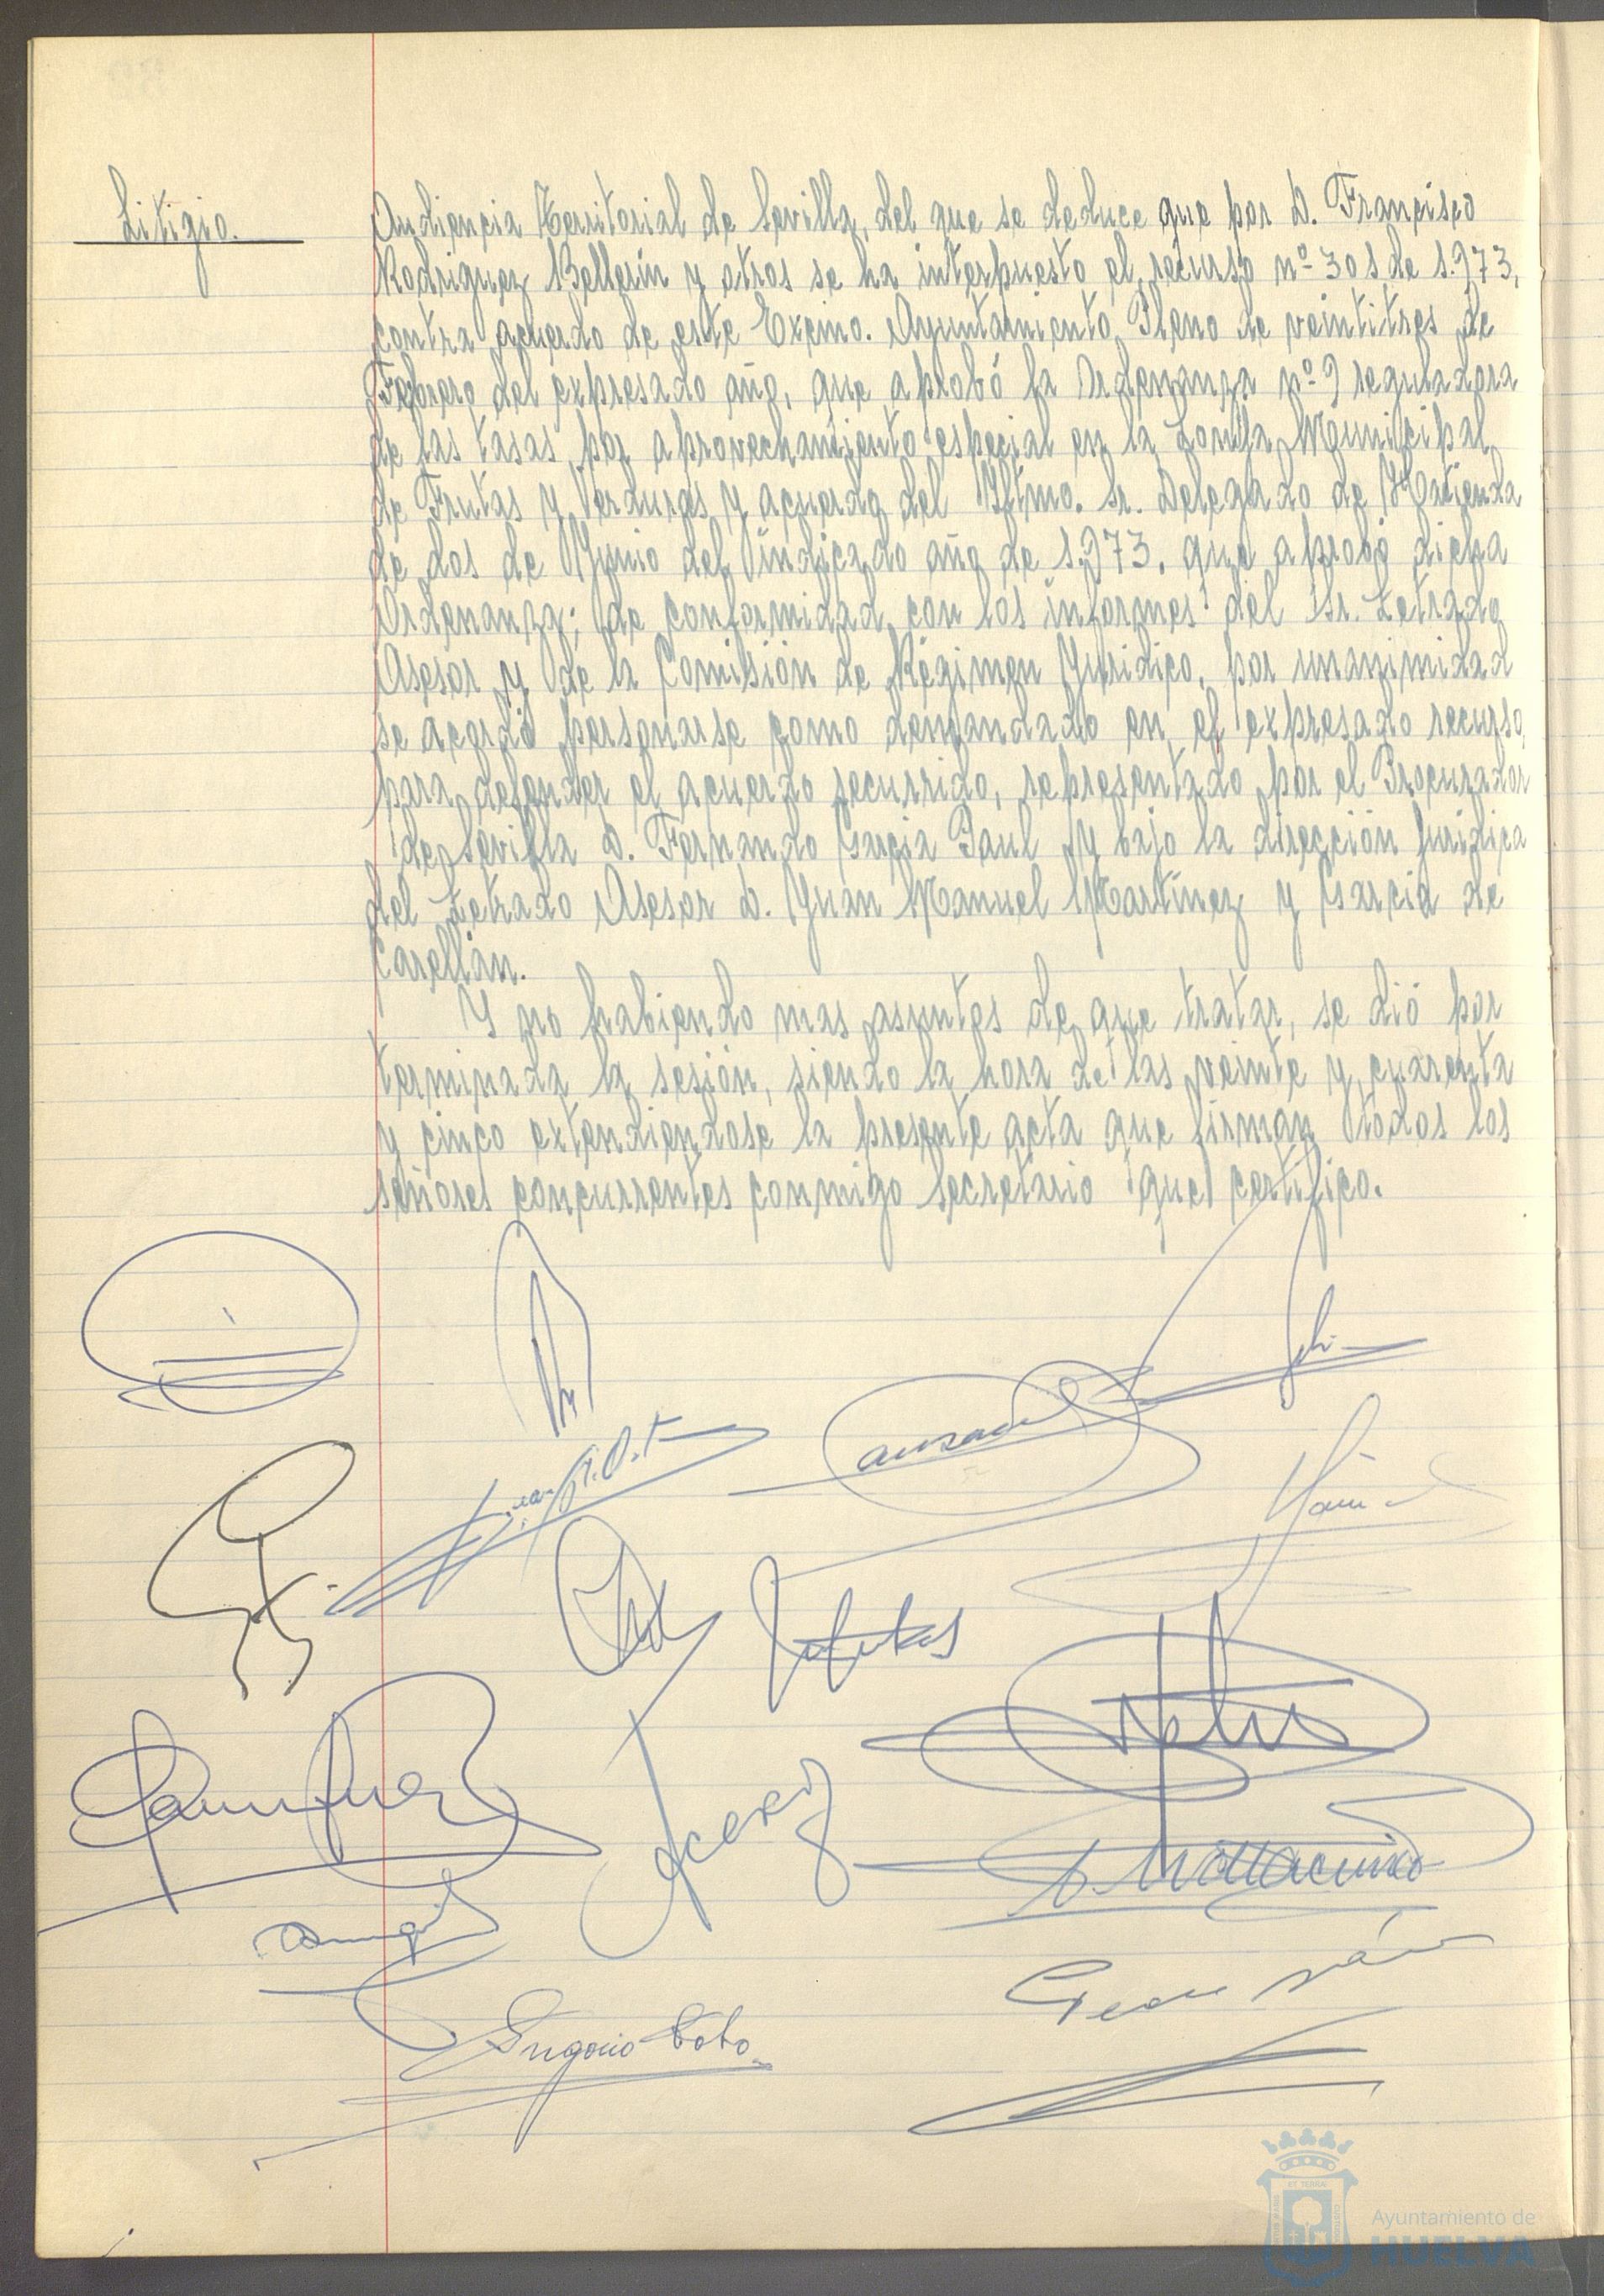 Litigio.
Audiencia Territorial de Sevilla, del que se deduce que por D. Francisco
Rodriguez Bellerín y otros se ha interpuesto el recurso nº 305 de 1.973,
contra acuerdo de este Excmo. Ayuntamiento Pleno de veintitres de
Febrero del expresado año, que aprobó la Ordenanza nº 9 reguladora
de las tasas por aprovechamiento especial en la Lonja Municipal
de Frutas y Verduras y acuerdo del Iltmo. Sr. Delegado de Hacienda
de dos de Junio del indicado año de 1.973, que aprobó dicha
Ordenanza; de conformidad con los informes del Sr. Letrado
Asesor y de la Comisión de Régimen Juridico, por unanimidad
se acordó personarse como demandado en el expresado recurso,
para defender el acuerdo recurrido, representado por el Procurador
de Sevilla D. Fernando Garcia Paul y bajo la dirección juridica
del Letrado Asesor D. Juan Manuel Martínez y Garcia de
Carellán.
Y no habiendo mas asuntos de que tratar, se dió por
terminada la sesión, siendo la hora de las veinte y cuarenta
y cinco extendiendose la presente acta que firman todos los
señores concurrentes conmigo Secretario que certifico.
Gregorio Toto
Ayuntamiento de
HUELVA